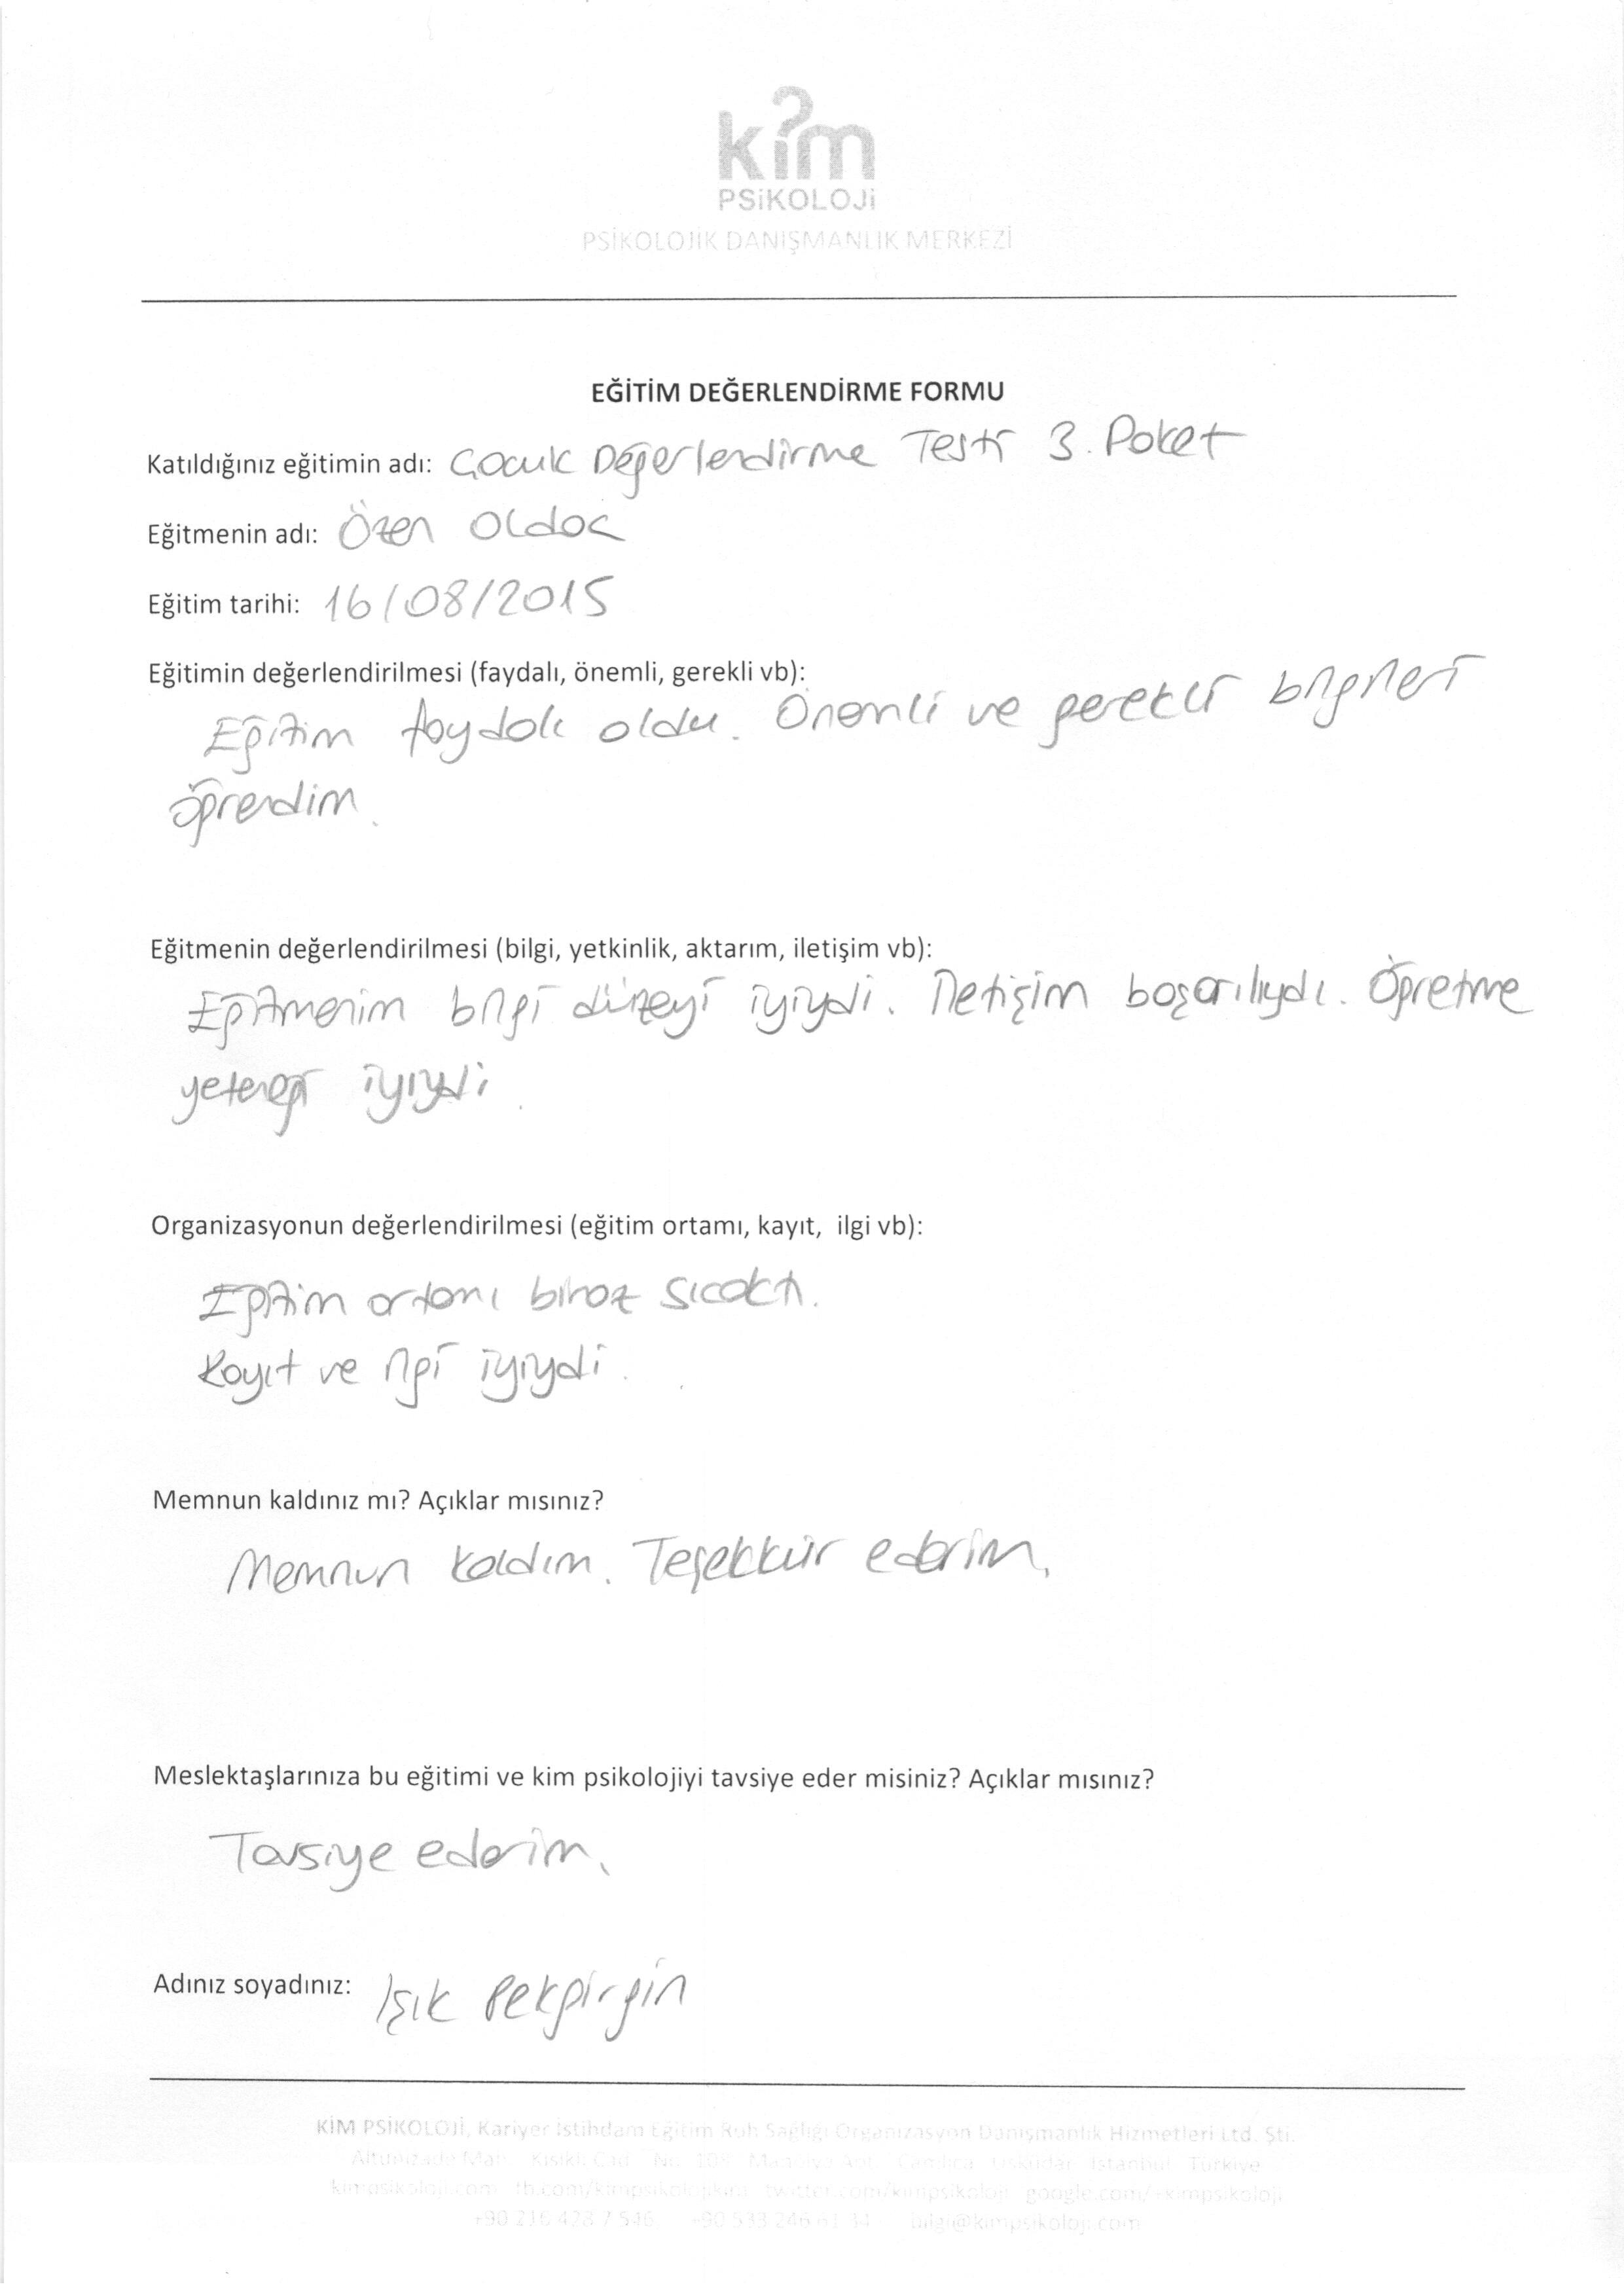 kim
PSiKOLOJi
PSİKOLOJİK DANIŞMANLIK MERKEZİ
EĞİTİM DEĞERLENDİRME FORMU
Katıldığınız eğitimin adı: Çocuk Değerlendirme Testi 3. Paket
Eğitmenin adı: Özen Oldaç
Eğitim tarihi: 16/08/2015
Eğitimin değerlendirilmesi (faydalı, önemli, gerekli vb):
Eğitim faydalı oldu. Önemli ve gerekli bilgileri
öğrendim.
Eğitmenin değerlendirilmesi (bilgi, yetkinlik, aktarım, iletişim vb):
Eğitmenim bilgi düzeyi iyiydi. İletişim başarılıydı. Öğretme
yeteneği iyiydi.
Organizasyonun değerlendirilmesi (eğitim ortamı, kayıt, ilgi vb):
Eğitim ortamı biraz sıcaktı.
Kayıt ve ilgi iyiydi.
Memnun kaldınız mı? Açıklar mısınız?
Memnun kaldım. Teşekkür ederim.
Meslektaşlarınıza bu eğitimi ve kim psikolojiyi tavsiye eder misiniz? Açıklar mısınız?
Tavsiye ederim.
Adınız soyadınız: Işık Pekgirgin
KİM PSİKOLOJİ, Kariyer İstihdam Eğitim Ruh Sağlığı Organizasyon Danışmanlık Hizmetleri Ltd. Şti.
Altunizade Mah. Kısıklı Cad. No: 108 Apt. Üsküdar İstanbul Türkiye
kimpsikoloji.com twitter.com/kimpsikoloji google.com/+kimpsikoloji
bilgi@kimpsikoloji.com